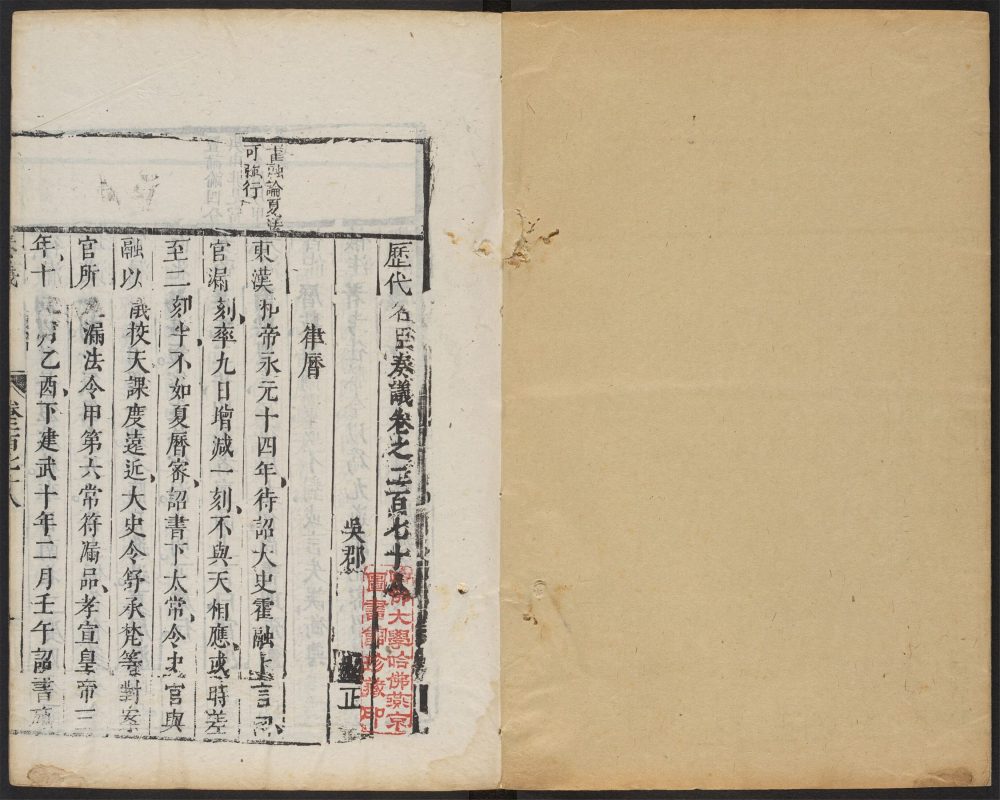 歷代名臣奏議卷之三百七十八
吳郡 正
律曆
東漢和帝永元十四年待詔大史霍融上言
官漏刻率九日增減一刻不與天相應或時差
至二刻半不如夏曆密詔書下太常令史官與
融以儀校天課度遠近大史令舒承梵等對案
官所 漏法令甲第六常符漏品孝宣皇帝三
年十二月乙酉下建武十年二月壬午詔書施
霍融論夏曆
可施行
哈佛大學哈佛燕京
圖書館珍藏印